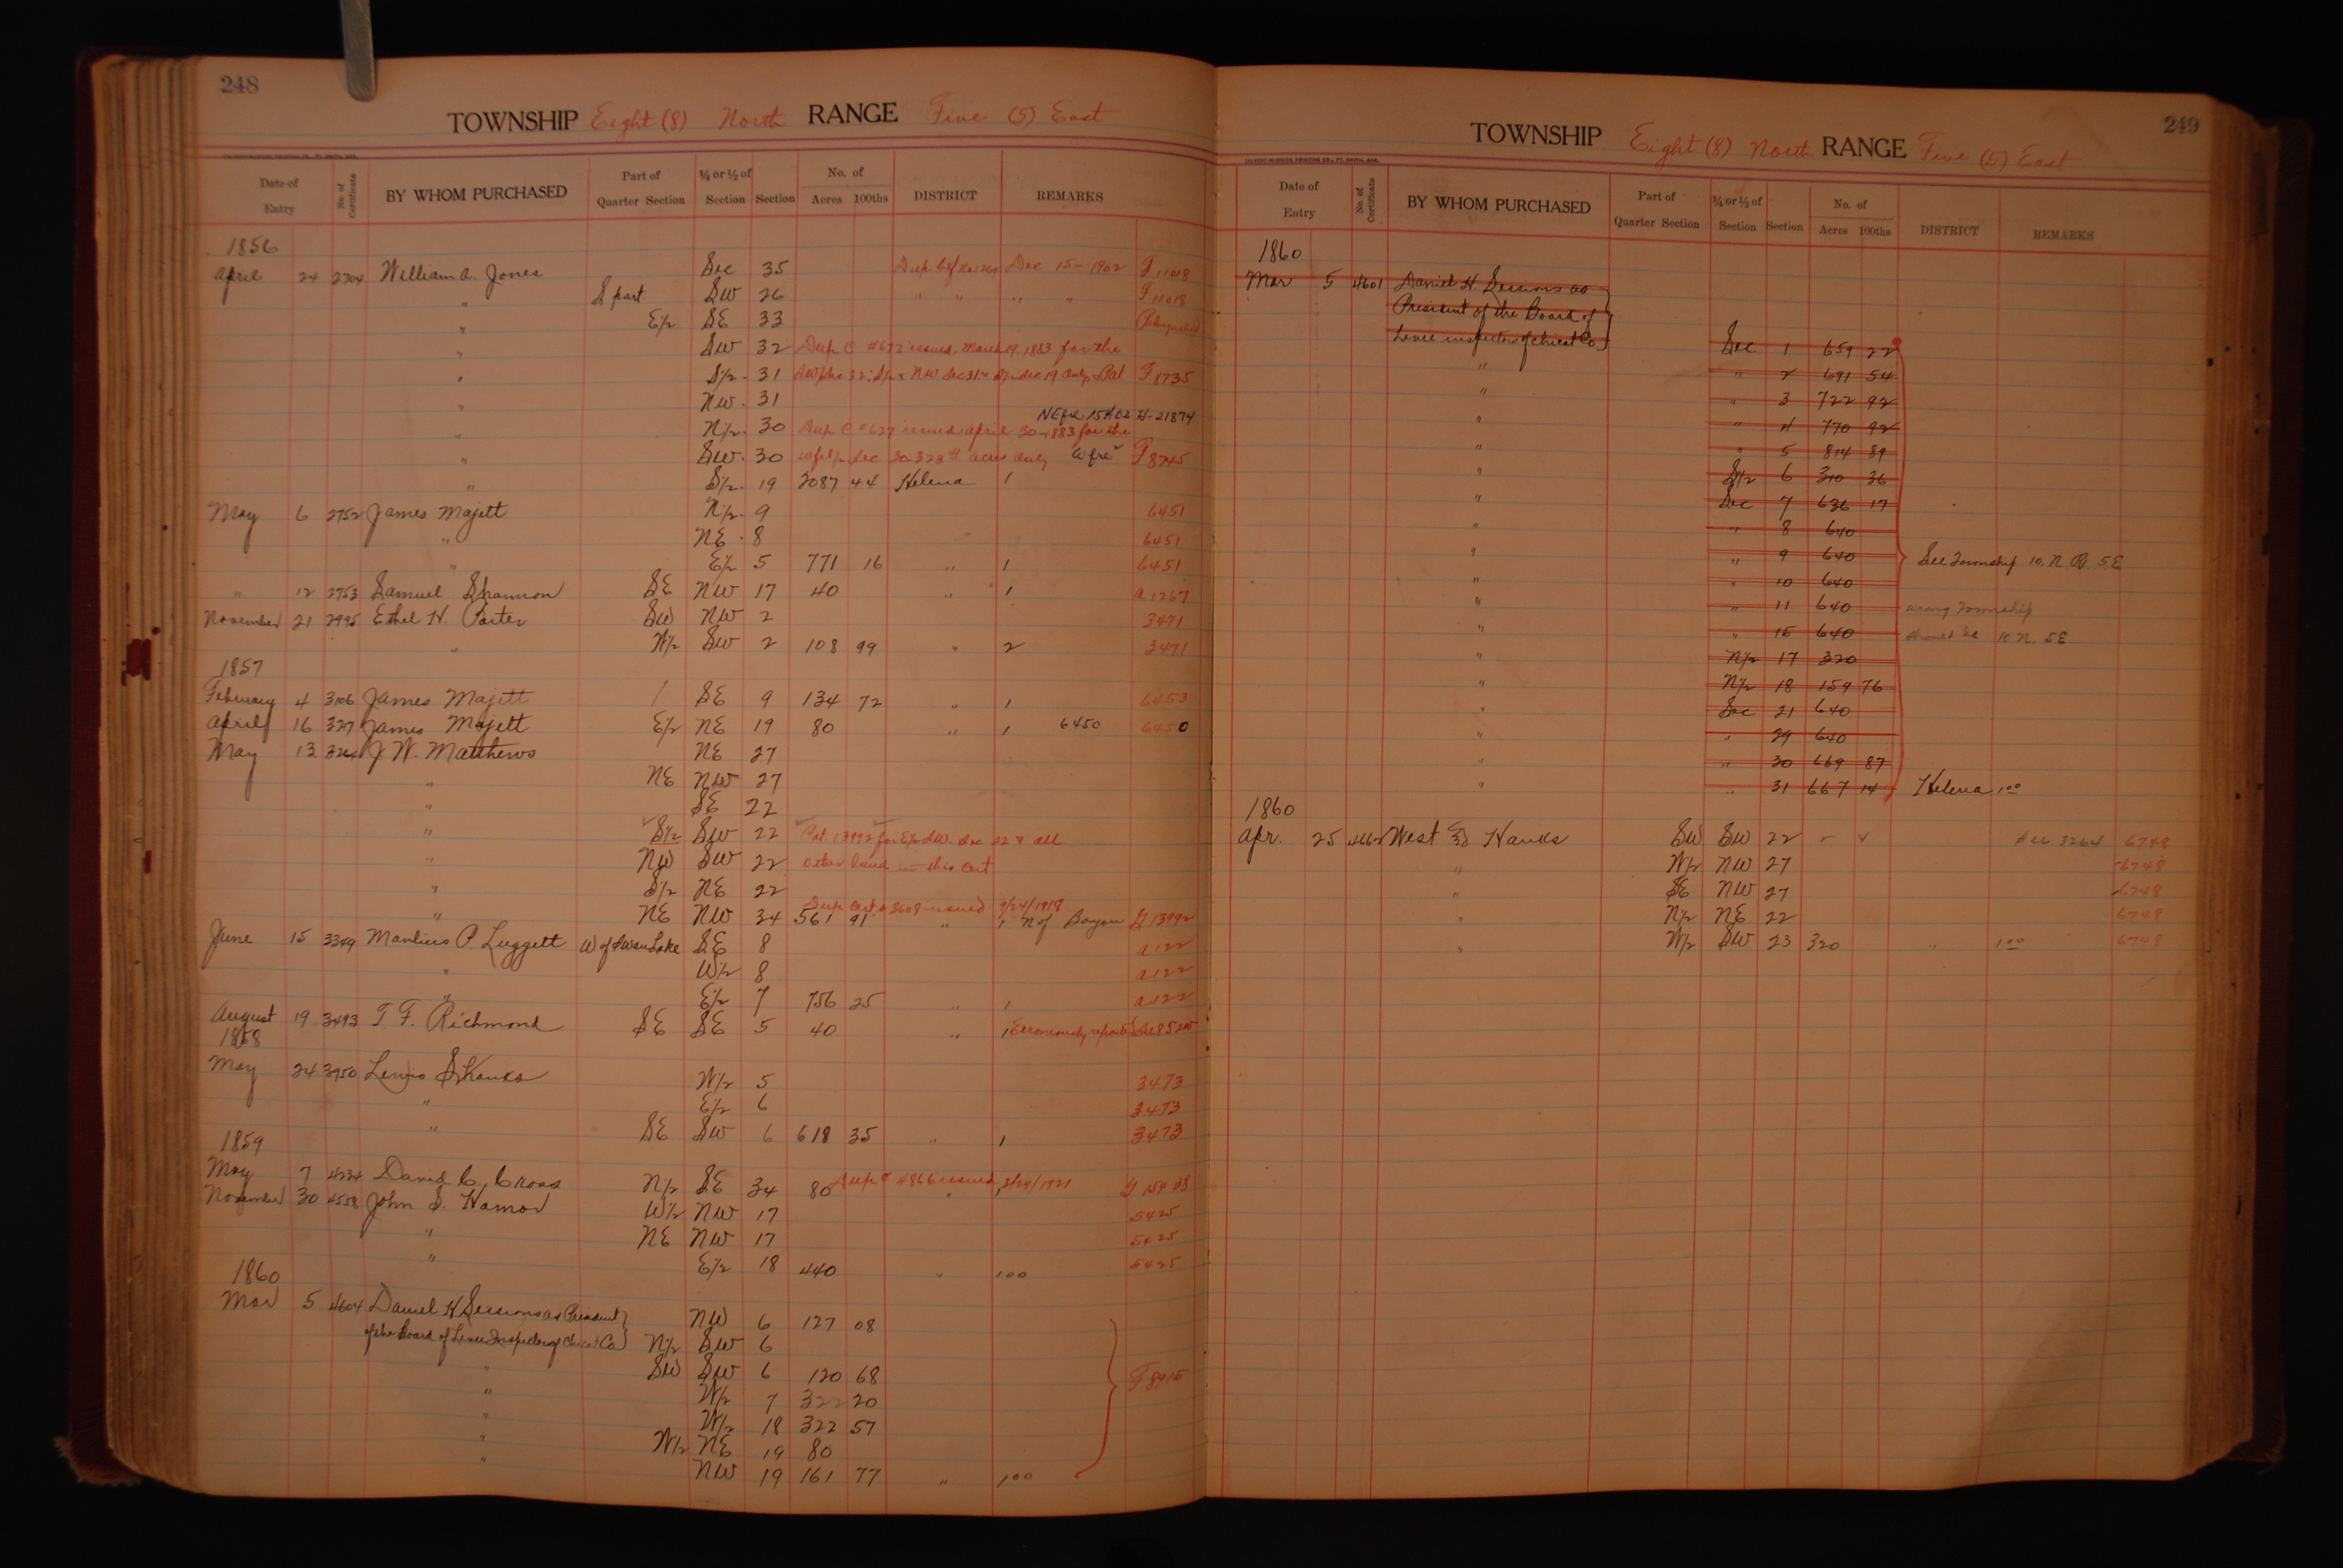 248
TOWNSHIP Eight (8) North RANGE Five (5) East
Date of Entry No. of Certificate BY WHOM PURCHASED Part of Quarter Section ¼ or ½ of Section Section No. of Acres 100ths DISTRICT REMARKS
1856
April 24 2704 William A. Jones Sec 35 Dec 15-1902 F 11018
" S part SW 26 " " " " F 11018
" E/2 SE 33 Relinquished
" SW 32 Dup C #672 issued March 19, 1883 for the
" S/2 31 Pat F 8735
" NW 31
" N/2 30 Dup C #627 issued April 30-1883 for the NE frl 15 H-21874
" SW 30 acres only W frl F 8745
" S/2 19 2087 44 Helena 1
May 6 2752 James Majett N/2 9 6451
" NE 8 6451
" E/2 5 771 16 " 1 6451
" 12 2753 Samuel Shannon SE NW 17 40 " 1 A 1267
November 21 2995 Ethel H. Porter SW NW 2 3471
" N/2 SW 2 108 99 " 2 3471
1857
February 4 3106 James Majett SE 9 134 72 " 1 6453
April 16 327 James Majett E/2 NE 19 80 " 1 6450 6450
May 13 3264 J W. Matthews NE 27
" NE NW 27
" SE 22
" S/2 SW 22 Pat. 13992 for E/2 SW. Sec 22 & all
" NW SW 22 other land in this cert
" S/2 NE 22
" NE NW 34 561 91 Dup Cert # 3608 issued 9/24/1918 " 1 N of Bayou H 13992
June 15 3349 Manlius P. Luggett W of Swan Lake SE 8 A 122
" W/2 8 A 122
" E/2 7 756 25 " 1 A 122
August 19 3493 T F. Richmond SE SE 5 40 " 1 Erroneously reported
1858
May 24 3950 Lewis Shanks W/2 5 3473
" E/2 6 3473
" SE SW 6 618 35 " 1 3473
1859
May 7 4234 David C. Cross N/2 SE 34 80 Dup # 4866 issued 3/29/1921 " 1
November 30 4558 John S. Hamor W/2 NW 17 5425
" NE NW 17 5425
" E/2 18 440 " 1 00 5425
1860
Mar 5 4604 Daniel H Sessions as President NW 6 127 08
of the Board of Levee Inspectors of Chicot Co N/2 SW 6
" SW SW 6 120 68 F 8915
" W/2 7 322 20
" W/2 18 322 57
" W/2 NE 19 80
" NW 19 161 77 " 1 00
249
TOWNSHIP Eight (8) North RANGE Five (5) East
Date of Entry No. of Certificate BY WHOM PURCHASED Part of Quarter Section ¼ or ½ of Section Section No. of Acres 100ths DISTRICT REMARKS
1860
Mar 5 4601 Daniel H. Sessions as
President of the Board of
Levee inspectors of Chicot Co Sec 1 659 22
" " 2 691 54
" " 3 722 92
" " 4 770 92
" " 5 814 89
" S/2 6 310 36
" Sec 7 636 17
" " 8 640
" " 9 640 See Township 10. N. R. 5 E
" " 10 640
" " 11 640 wrong Township
" " 15 640 should be 10 N. 5 E
" N/2 17 320
" N/2 18 159 76
" Sec 21 640
" " 29 640
" " 30 669 87
" " 31 667 14 Helena 1 00
1860
Apr. 25 West & Hanks SW SW 22 Sec 3264 6748
" W/2 NW 27 6748
" SE NW 27 6748
" N/2 NE 22 6748
" W/2 SW 23 320 " 1 00 6748